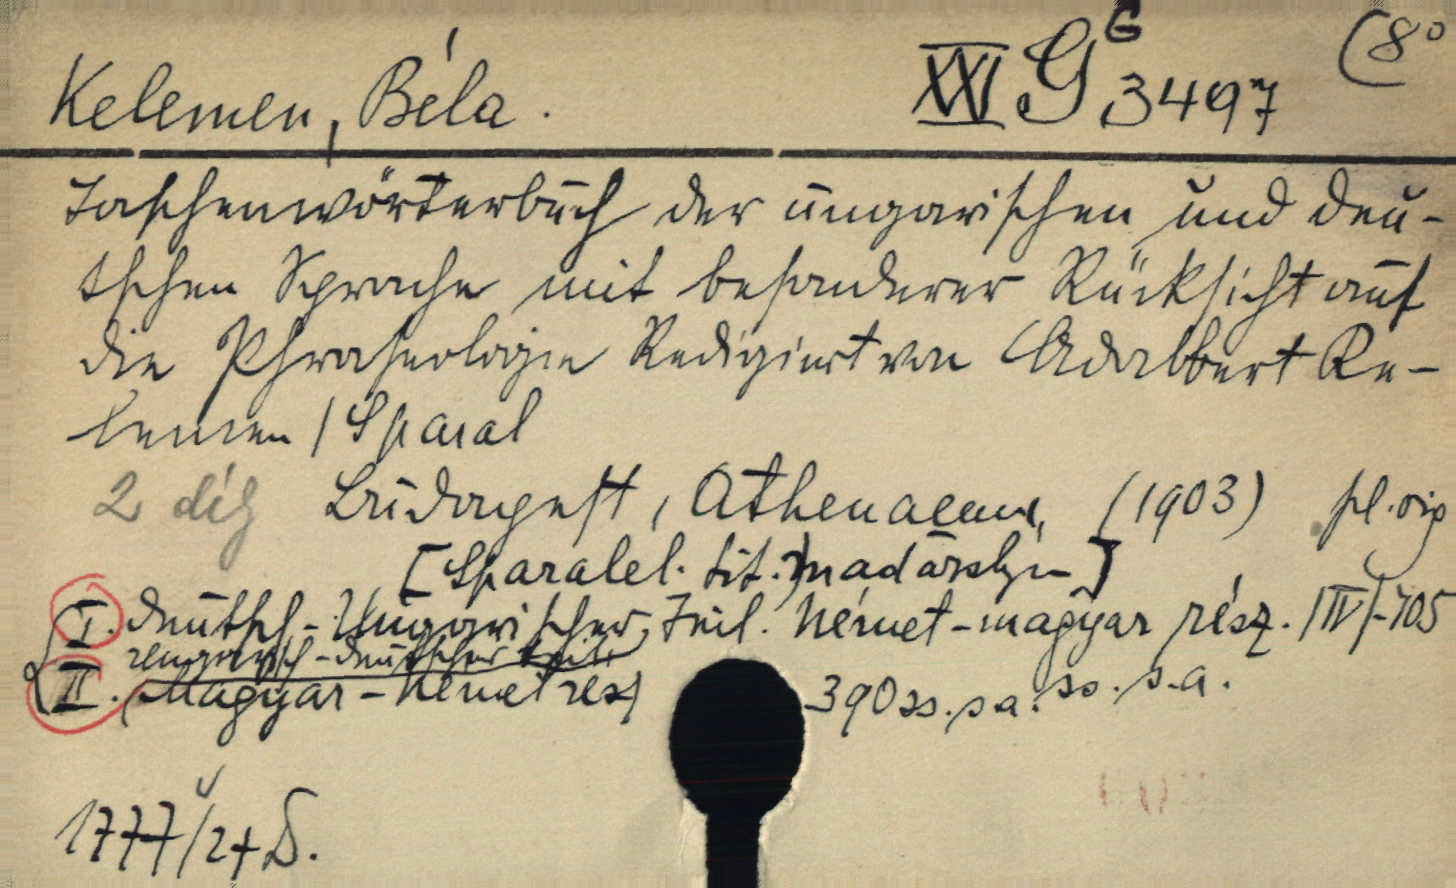 Kelemen, Béla.
XVI G G 3497 (8°
Taschenwörterbuch der ungarischen und deu-
tschen Sprache mit besonderer Rücksicht auf
die Phraseologie Redigiert von Adalbert Ke-
lemen
2 díly Budapest, Athenaeum, (1903) pl. orig
[Paralel. tit. maďarský]
I. Deutsch-Ungarischer Teil. Német-magyar rész. /IV/-705
ss. s.a.
Ungarisch-deutscher Teil.
II. Magyar-német rész 390 ss. s.a.
1777/27 D.